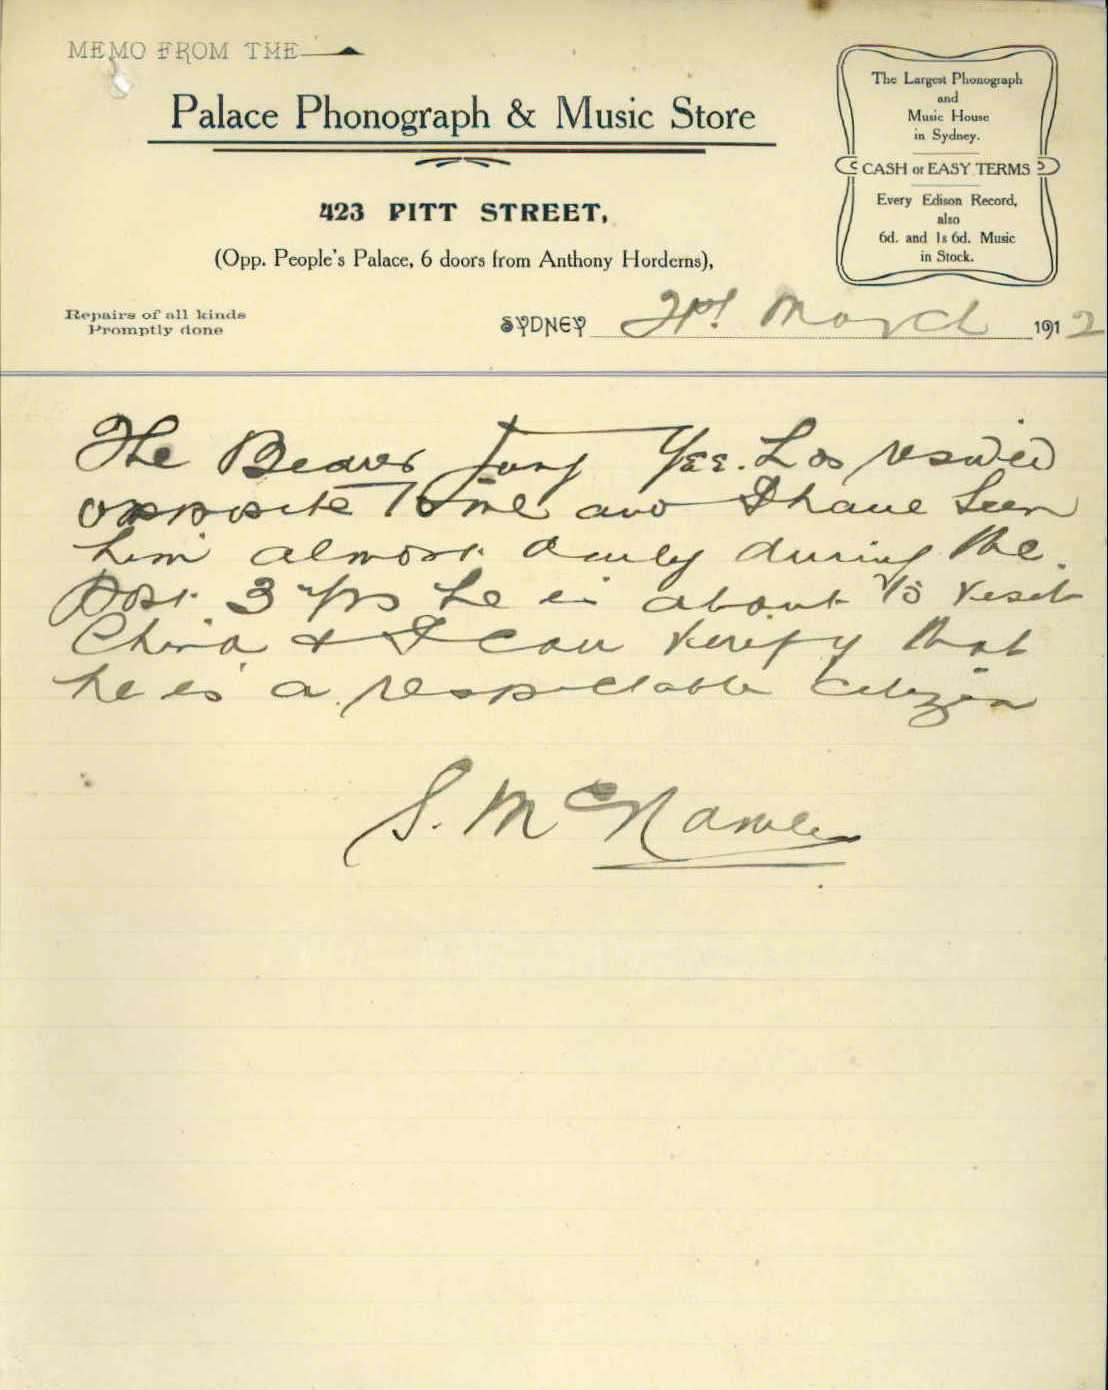 MEMO FROM THE
Palace Phonograph & Music Store
423 PITT STREET,
(Opp. People's Palace, 6 doors from Anthony Horderns),
The Largest Phonograph
and
Music House
in Sydney.
CASH or EASY TERMS
Every Edison Record,
also
6d. and 1s 6d. Music
in Stock.
Repairs of all kinds
Promptly done
SYDNEY March 1912
The Bearer Yee has resided
opposite to me and I have seen
him almost daily during the
past 3 yrs he is about to visit
China & I can verify that
he is a respectable citizen
S. Mc